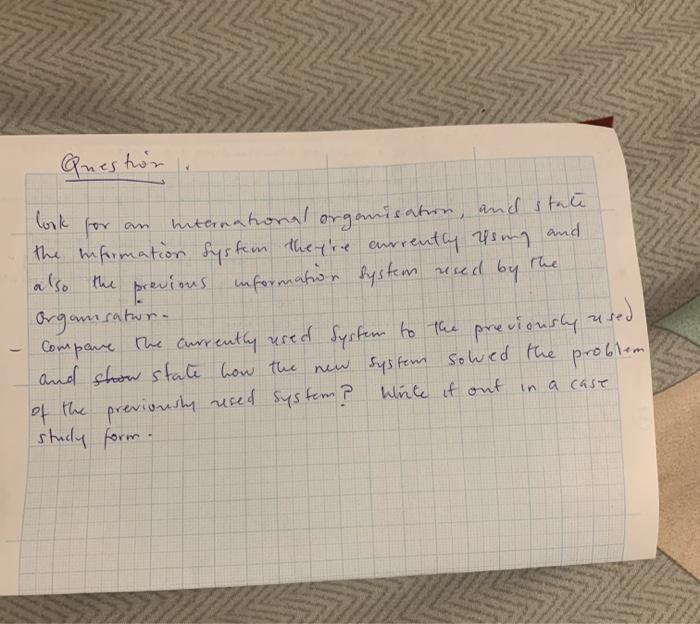 Question.
look for an international organisation, and state
the information system they're currently using and
also the previous information system used by the
organisation.
- Compare the currently used system to the previously used
and show state how the new system solved the problem
of the previously used system? Write it out in a case
study form.